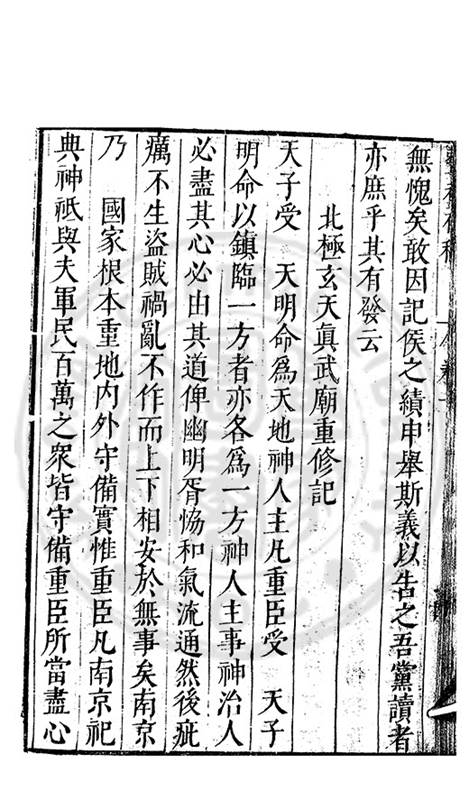 無愧矣敢因記侯之績申舉斯義以告之吾黨讀者
亦庶乎其有發云
北極玄天眞武廟重修記
天子受　天明命爲天地神人主凡重臣受　天子
明命以鎮臨一方者亦各爲一方神人主事神治人
必盡其心必由其道俾幽明胥恊和氣流通然後疵
癘不生盜賊禍亂不作而上下相安於無事矣南京
乃　國家根本重地内外守備實惟重臣凡南京祀
典神祇與夫軍民百萬之衆皆守備重臣所當盡心